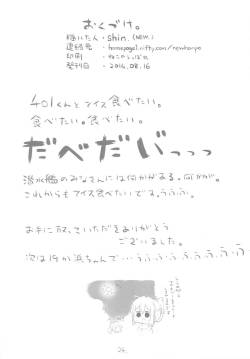 おくづけ。
描いたん・shin.(NEW.)
連絡先・homepage1.nifty.com/newhanpo
印刷・ねこのしっぽさん
発行日・2014.08.16
401くんとアイス食べたい。
食べたい。食べたい。
だべだいっっっ
潜水艦のみなさんには何かがある。何かが。
これからもアイス食べたいです。うふふ。
お手に取っていただきありがとう
ございました。
次は19か浜ちゃんで…うふふうふふ
26